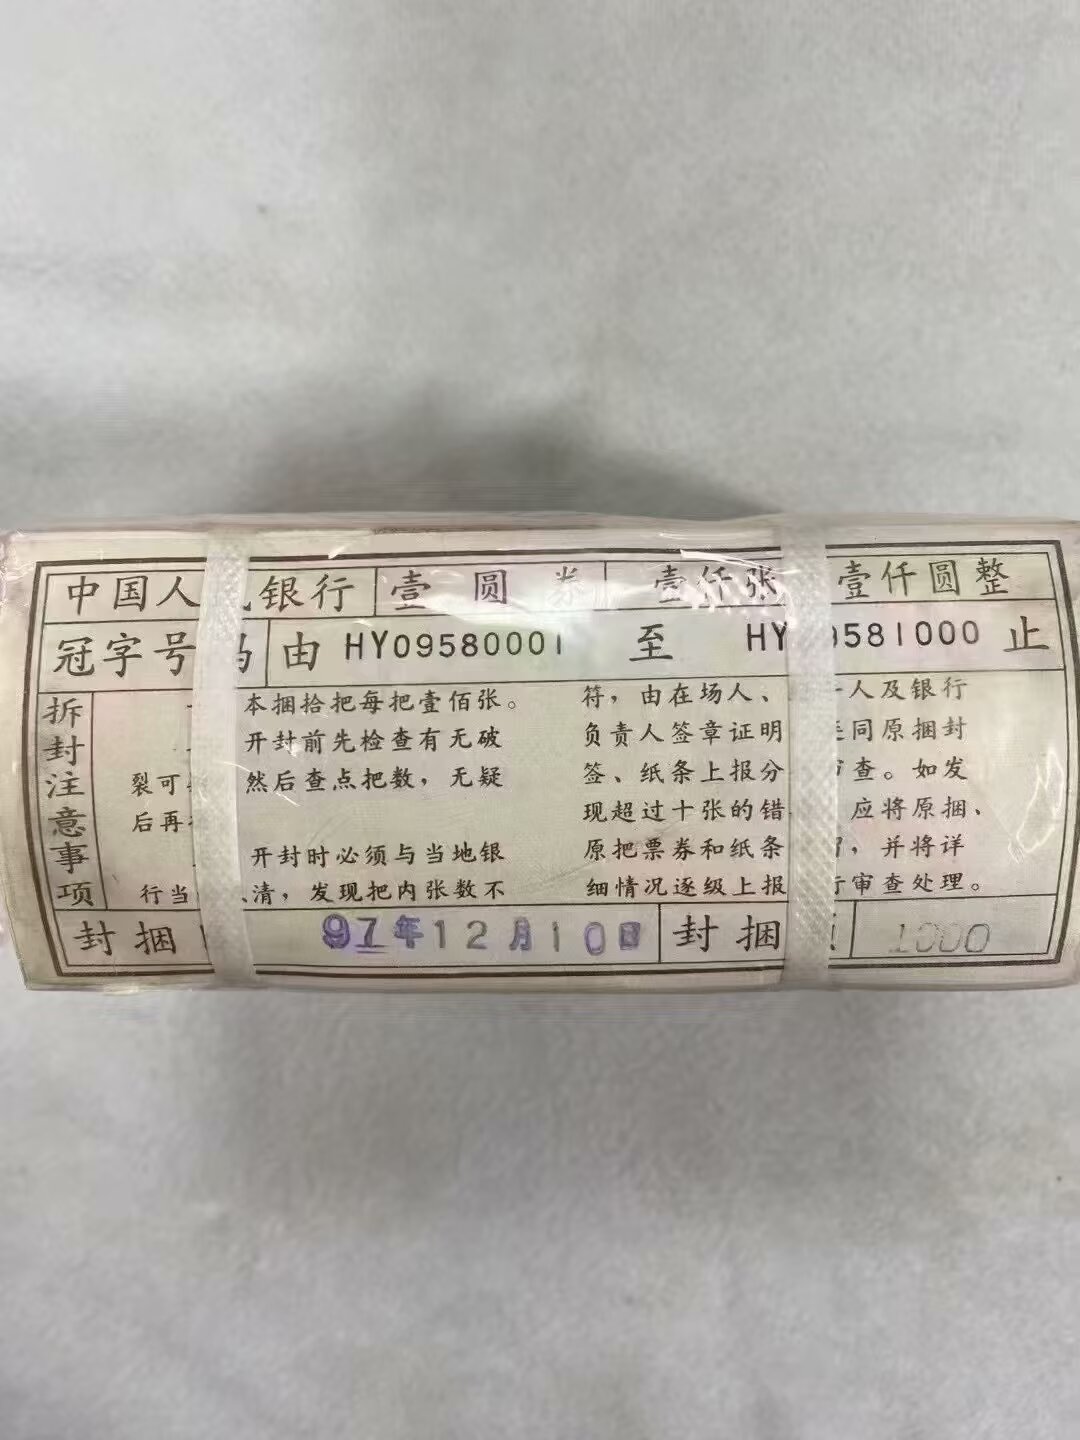 中国人 银行 壹圆券 壹仟张 壹仟圆整
冠字号码 由 HY09580001 至 HY 9581000 止
拆封注意事项
本捆拾把每把壹佰张。
开封前先检查有无破
裂可 然后查点把数，无疑
后再
开封时必须与当地银
行当 清，发现把内张数不
符，由在场人、 人及银行
负责人签章证明 同原捆封
签、纸条上报分 审查。如发
现超过十张的错 应将原捆、
原把票券和纸条 ，并将详
细情况逐级上报 行审查处理。
封捆 97年12月10日 封捆 1000